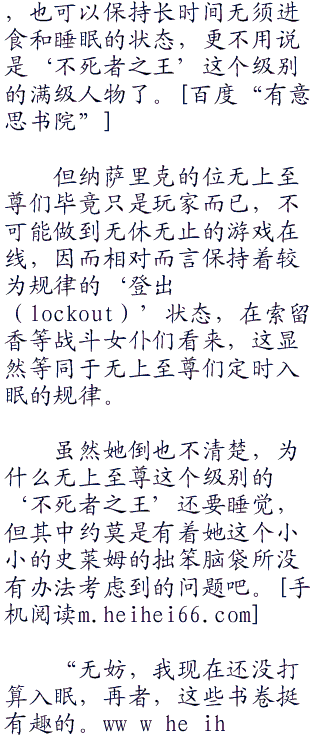 ，也可以保持长时间无须进
食和睡眠的状态，更不用说
是‘不死者之王’这个级别
的满级人物了。[百度“有意
思书院”]
但纳萨里克的位无上至
尊们毕竟只是玩家而已，不
可能做到无休无止的游戏在
线，因而相对而言保持着较
为规律的‘登出
（lockout）’状态，在索留
香等战斗女仆们看来，这显
然等同于无上至尊们定时入
眠的规律。
虽然她倒也不清楚，为
什么无上至尊这个级别的
‘不死者之王’还要睡觉，
但其中约莫是有着她这个小
小的史莱姆的拙笨脑袋所没
有办法考虑到的问题吧。[手
机阅读m.heihei66.com]
“无妨，我现在还没打
算入眠，再者，这些书卷挺
有趣的。ww w he ih